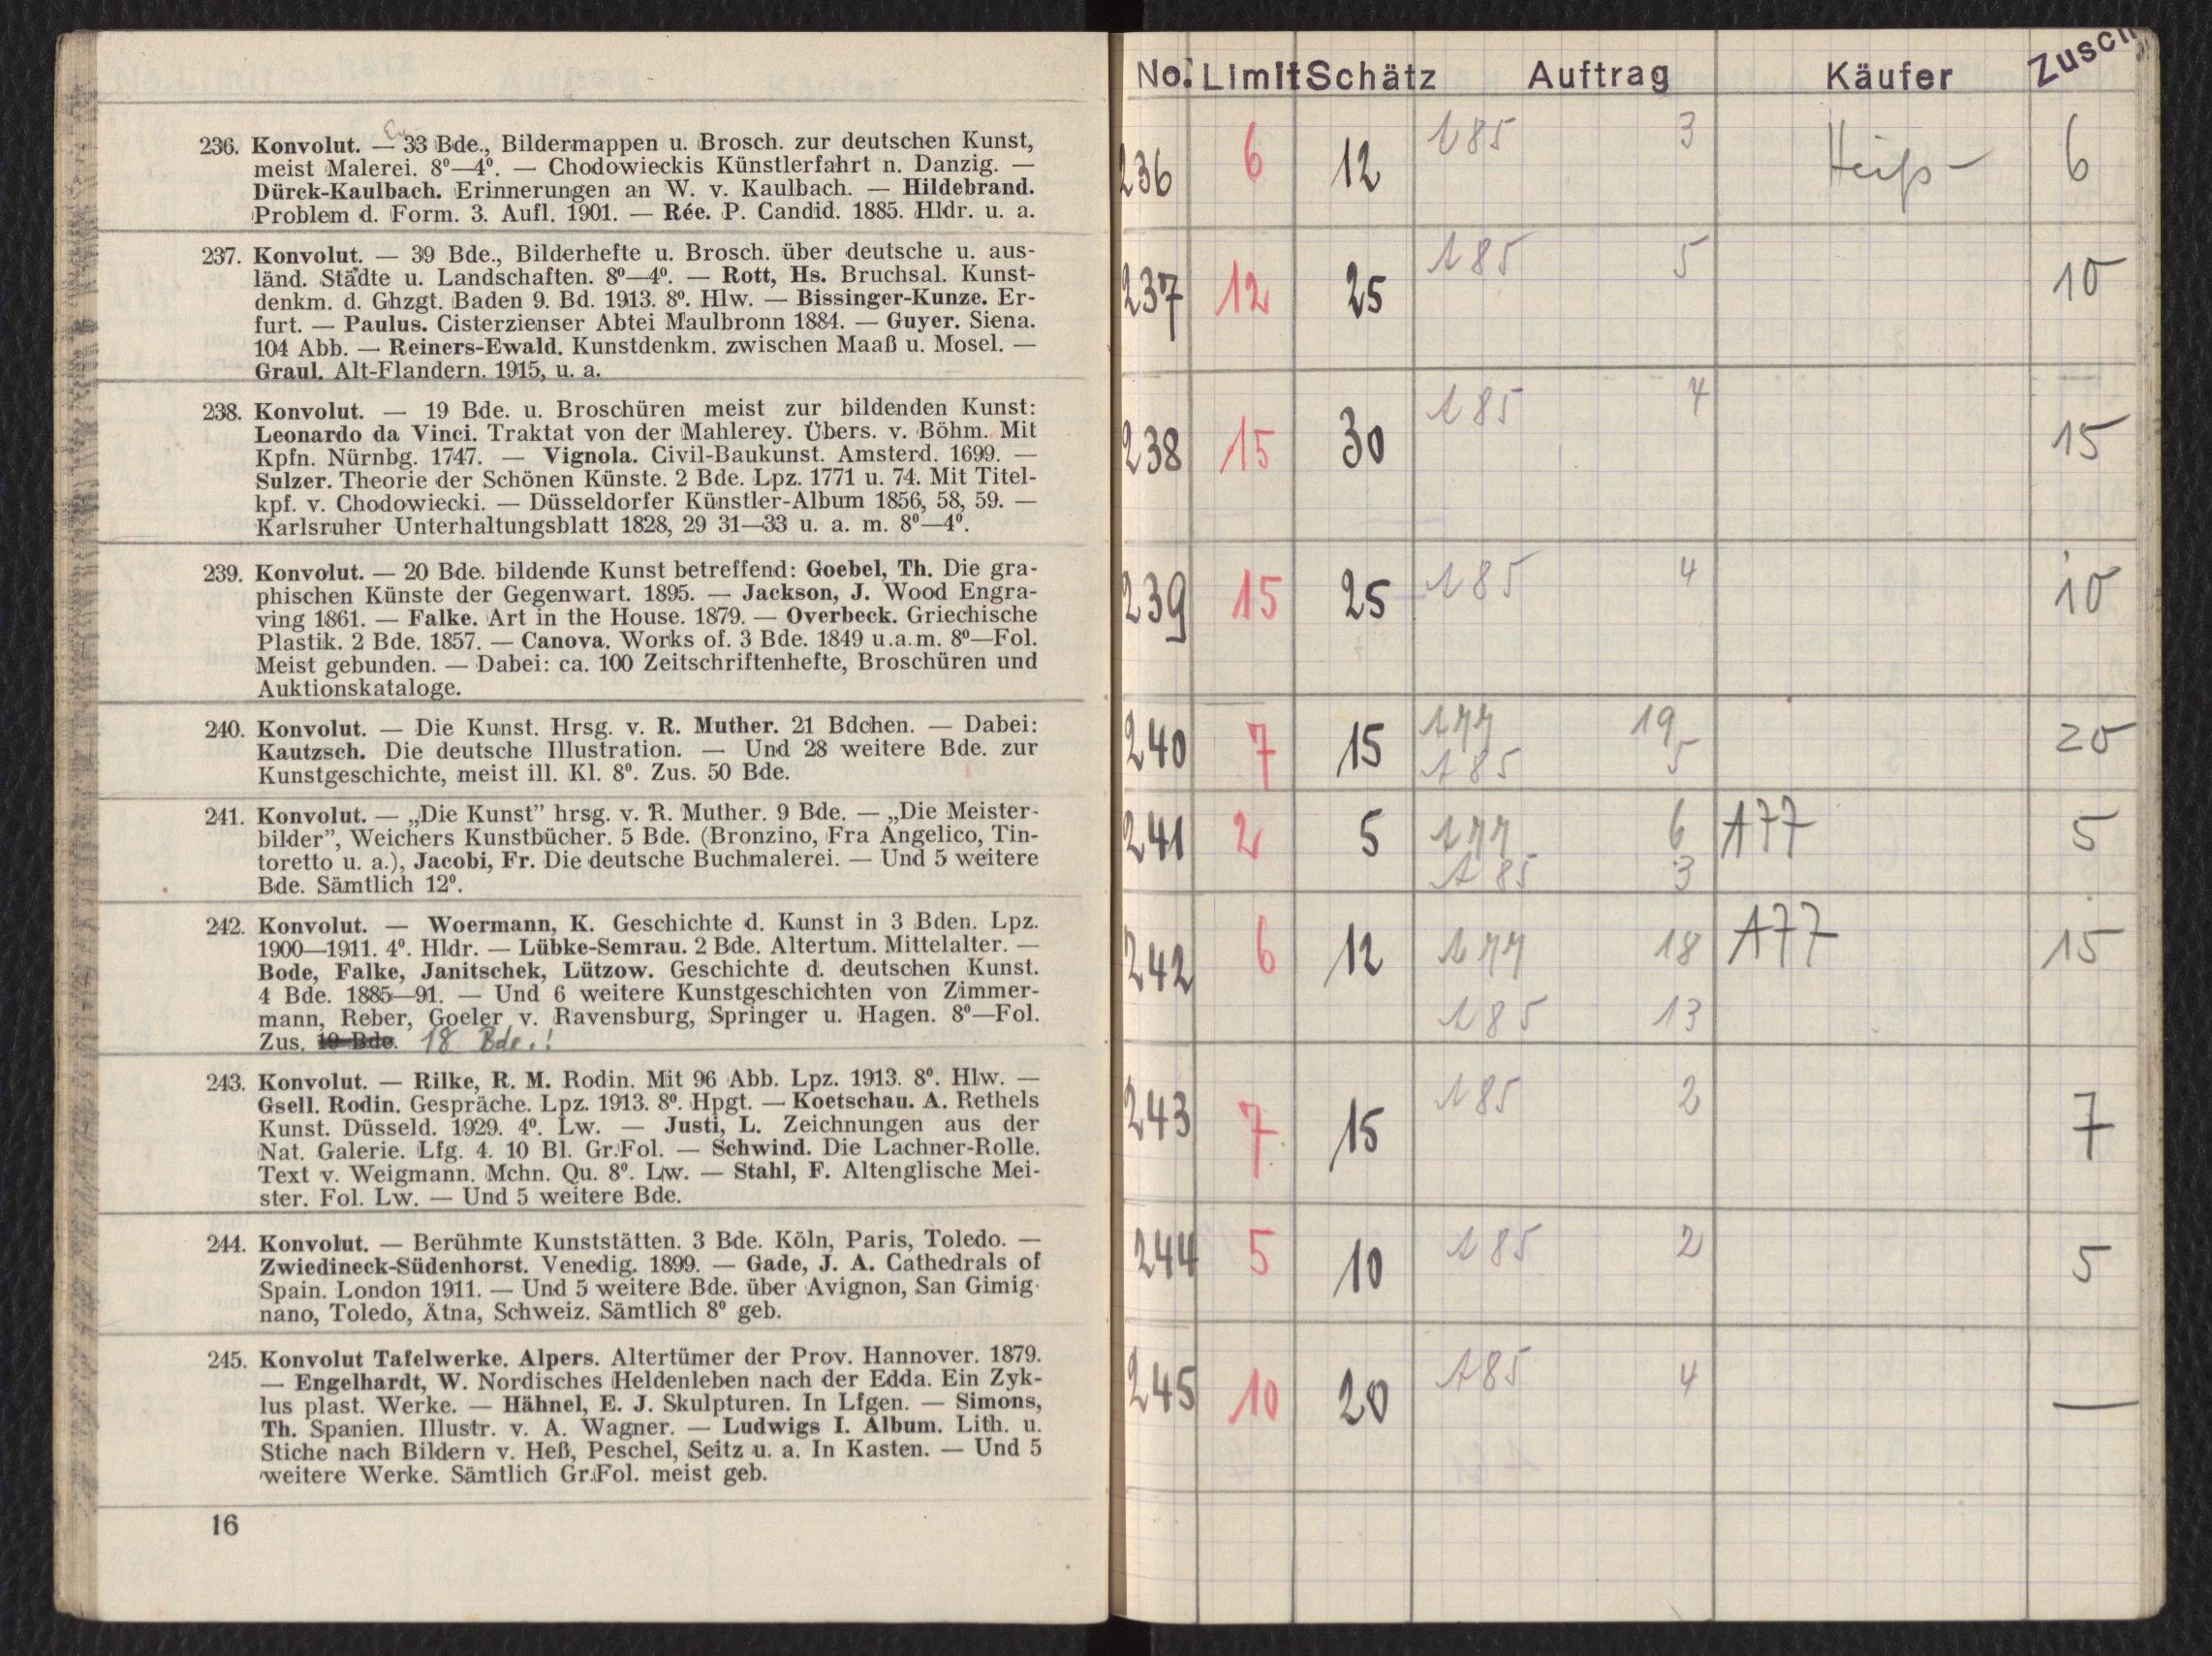 236. Konvolut. — 33 Bde., Bildermappen u. Brosch. zur deutschen Kunst,
meist Malerei. 8⁰—4⁰. — Chodowieckis Künstlerfahrt n. Danzig. —
Dürck-Kaulbach. Erinnerungen an W. v. Kaulbach. — Hildebrand.
Problem d. Form. 3. Aufl. 1901. — Rée. P. Candid. 1885. Hldr. u. a.
237. Konvolut. — 39 Bde., Bilderhefte u. Brosch. über deutsche u. aus-
länd. Städte u. Landschaften. 8⁰—4⁰. — Rott, Hs. Bruchsal. Kunst-
denkm. d. Ghzgt. Baden 9. Bd. 1913. 8⁰. Hlw. — Bissinger-Kunze. Er-
furt. — Paulus. Cisterzienser Abtei Maulbronn 1884. — Guyer. Siena.
104 Abb. — Reiners-Ewald. Kunstdenkm. zwischen Maaß u. Mosel. —
Graul. Alt-Flandern. 1915, u. a.
238. Konvolut. — 19 Bde. u. Broschüren meist zur bildenden Kunst:
Leonardo da Vinci. Traktat von der Mahlerey. Übers. v. Böhm. Mit
Kpfn. Nürnbg. 1747. — Vignola. Civil-Baukunst. Amsterd. 1699. —
Sulzer. Theorie der Schönen Künste. 2 Bde. Lpz. 1771 u. 74. Mit Titel-
kpf. v. Chodowiecki. — Düsseldorfer Künstler-Album 1856, 58, 59. —
Karlsruher Unterhaltungsblatt 1828, 29 31—33 u. a. m. 8⁰—4⁰.
239. Konvolut. — 20 Bde. bildende Kunst betreffend: Goebel, Th. Die gra-
phischen Künste der Gegenwart. 1895. — Jackson, J. Wood Engra-
ving 1861. — Falke. Art in the House. 1879. — Overbeck. Griechische
Plastik. 2 Bde. 1857. — Canova. Works of. 3 Bde. 1849 u.a.m. 8⁰—Fol.
Meist gebunden. — Dabei: ca. 100 Zeitschriftenhefte, Broschüren und
Auktionskataloge.
240. Konvolut. — Die Kunst. Hrsg. v. R. Muther. 21 Bdchen. — Dabei:
Kautzsch. Die deutsche Illustration. — Und 28 weitere Bde. zur
Kunstgeschichte, meist ill. Kl. 8⁰. Zus. 50 Bde.
241. Konvolut. — „Die Kunst” hrsg. v. R. Muther. 9 Bde. — „Die Meister-
bilder”, Weichers Kunstbücher. 5 Bde. (Bronzino, Fra Angelico, Tin-
toretto u. a.), Jacobi, Fr. Die deutsche Buchmalerei. — Und 5 weitere
Bde. Sämtlich 12⁰.
242. Konvolut. — Woermann, K. Geschichte d. Kunst in 3 Bden. Lpz.
1900—1911. 4⁰. Hldr. — Lübke-Semrau. 2 Bde. Altertum. Mittelalter. —
Bode, Falke, Janitschek, Lützow. Geschichte d. deutschen Kunst.
4 Bde. 1885—91. — Und 6 weitere Kunstgeschichten von Zimmer-
mann, Reber, Goeler v. Ravensburg, Springer u. Hagen. 8⁰—Fol.
Zus. 18 Bde.!
243. Konvolut. — Rilke, R. M. Rodin. Mit 96 Abb. Lpz. 1913. 8⁰. Hlw. —
Gsell. Rodin. Gespräche. Lpz. 1913. 8⁰. Hpgt. — Koetschau. A. Rethels
Kunst. Düsseld. 1929. 4⁰. Lw. — Justi, L. Zeichnungen aus der
Nat. Galerie. Lfg. 4. 10 Bl. Gr.Fol. — Schwind. Die Lachner-Rolle.
Text v. Weigmann. Mchn. Qu. 8⁰. Lw. — Stahl, F. Altenglische Mei-
ster. Fol. Lw. — Und 5 weitere Bde.
244. Konvolut. — Berühmte Kunststätten. 3 Bde. Köln, Paris, Toledo. —
Zwiedineck-Südenhorst. Venedig. 1899. — Gade, J. A. Cathedrals of
Spain. London 1911. — Und 5 weitere Bde. über Avignon, San Gimig-
nano, Toledo, Ätna, Schweiz. Sämtlich 8⁰ geb.
245. Konvolut Tafelwerke. Alpers. Altertümer der Prov. Hannover. 1879.
— Engelhardt, W. Nordisches Heldenleben nach der Edda. Ein Zyk-
lus plast. Werke. — Hähnel, E. J. Skulpturen. In Lfgen. — Simons,
Th. Spanien. Illustr. v. A. Wagner. — Ludwigs I. Album. Lith. u.
Stiche nach Bildern v. Heß, Peschel, Seitz u. a. In Kasten. — Und 5
weitere Werke. Sämtlich Gr.Fol. meist geb.
16
No. Limit Schätz Auftrag Käufer Zusch
236 6 12 A85 3 Heiß — 6
237 12 25 A85 5 10
238 15 30 A85 4 15
239 15 25 A85 4 10
240 7 15 A77 19 20
A85 5
241 2 5 A77 6 A77 5
A85 3
242 6 12 A77 18 A77 15
A85 13
243 7 15 A85 2 7
244 5 10 A85 2 5
245 10 20 A85 4 —